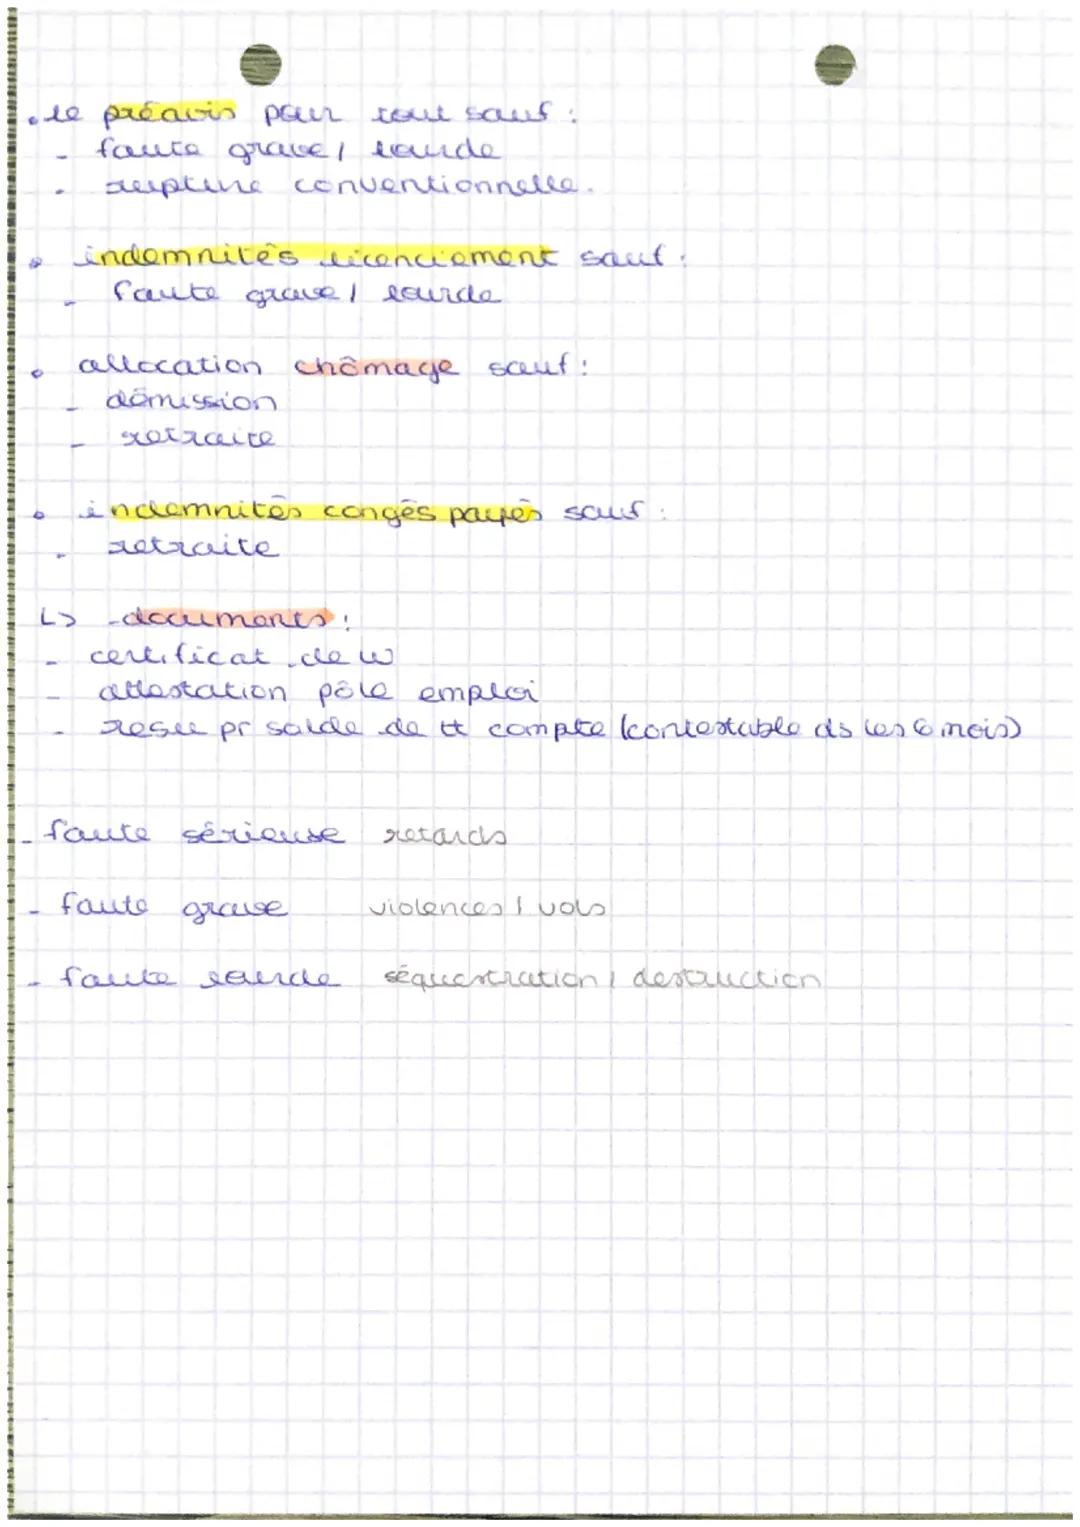 • le préavis pour tout sauf :
- faute grave / lourde
- rupture conventionnelle.
• indemnités licenciement sauf :
- faute grave / lourde
• allocation chômage sauf :
- démission
- retraite
• indemnités congés payés sauf :
- retraite
↳ -documents :
- certificat de w
- attestation pôle emploi
- resu pr solde de tt compte (contestable ds les 6 mois)
- faute sérieuse retards
- faute grave violences / vols
- faute lourde séquestration / destruction